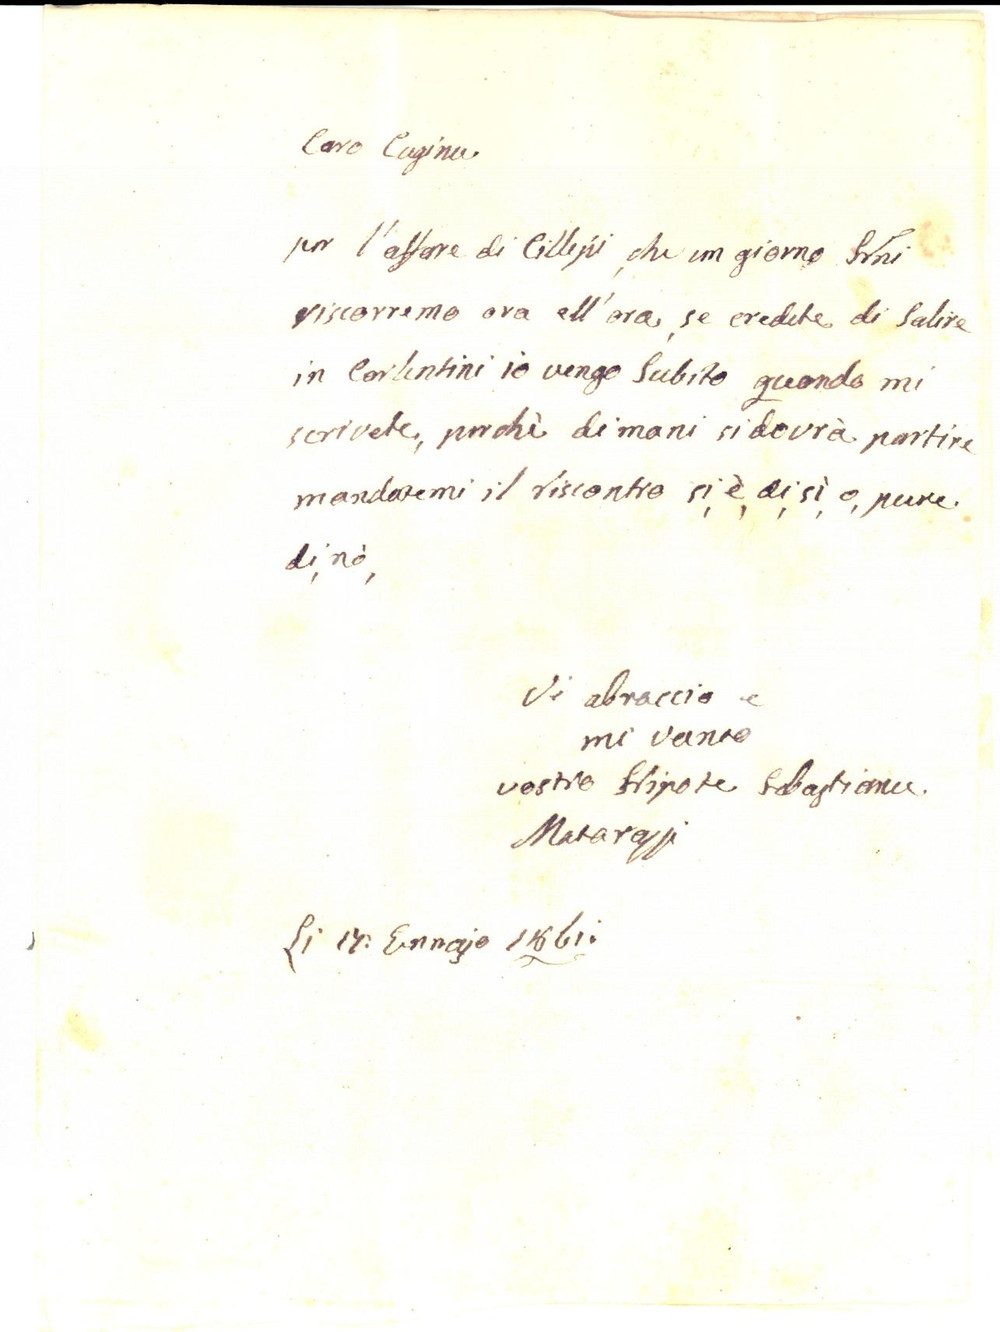 Caro Cuginu.
per l'affare di Cillepi, che un giorno
riscorremo ora all'ora, se credete di Salire
in Carlentini io vengo Subito quando mi
scrivete, perchè dimani si dovrà partire
mandatemi il riscontro si, è, di, sì, o, pure
di, nò,
Vi abraccio e
mi vanto
vostro Nipote Sebastianu
Matarazzi
Li 17: Ennajo 1861: